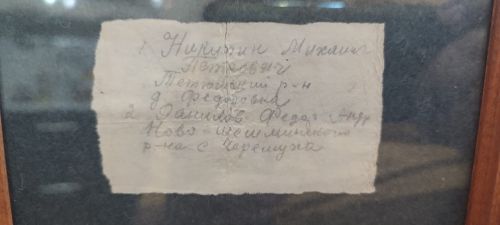 1 Никитин Михаил
Петрович
Тетюшский р-н
д Федоровка
2. Данилов Федор Андр
Ново-Шешминского
р-на с Черемуха